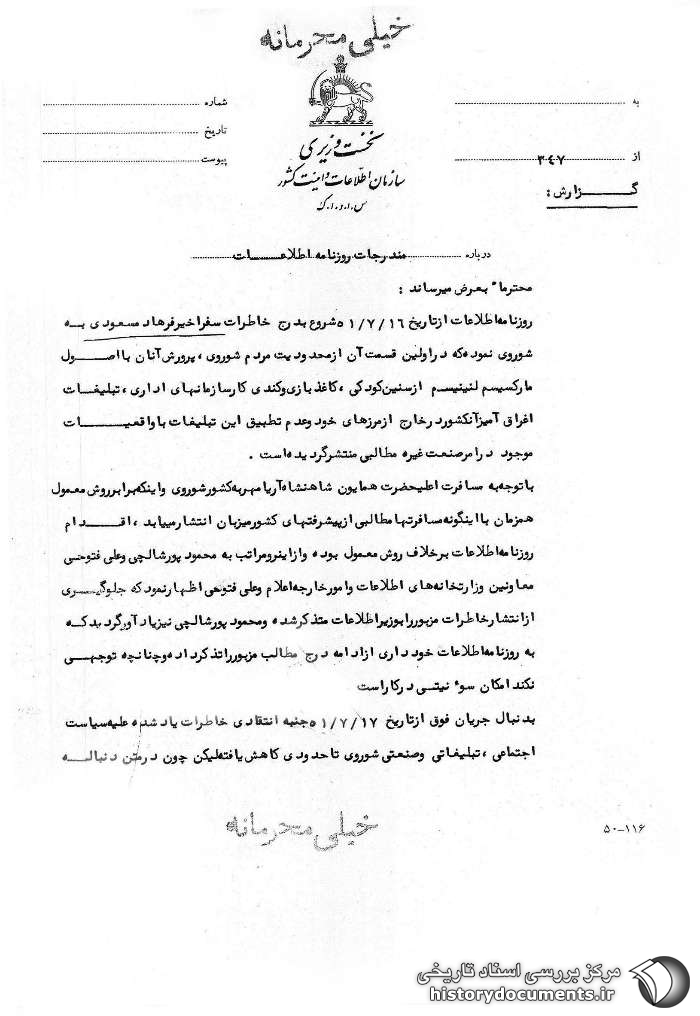 خیلی محرمانه
به
شماره
تاریخ
نخست وزیری
از ۳۴۷
پیوست
سازمان اطلاعات و امنیت کشور
س.ا.و.ا.ک
گزارش :
درباره مندرجات روزنامه اطلاعات
محترماً بعرض میرساند :
روزنامه اطلاعات از تاریخ ۵۱/۷/۱۶ شروع بدرج خاطرات سفر اخیر فرهاد مسعودی به
شوروی نموده که در اولین قسمت آن از محدودیت مردم شوروی ، پرورش آنان با اصول
مارکسیسم لنینیسم از سنین کودکی ، کاغذ بازی و کندی کار سازمانهای اداری ، تبلیغات
اغراق آمیز آنکشور در خارج از مرزهای خود و عدم تطبیق این تبلیغات با واقعیات
موجود در امر صنعت غیره مطالبی منتشر گردیده است .
با توجه به مسافرت اعلیحضرت همایون شاهنشاه آریامهر به کشور شوروی و اینکه برابر روش معمول
همزمان با اینگونه مسافرتها مطالبی از پیشرفتهای کشور میزبان انتشار مییابد ، اقدام
روزنامه اطلاعات بر خلاف روش معمول بوده و از اینرو مراتب به محمود پورشالچی و علی فتوحی
معاونین وزارتخانه های اطلاعات و امور خارجه اعلام و علی فتوحی اظهار نمود که جلوگیری
از انتشار خاطرات مزبور را بوزیر اطلاعات متذکر شده و محمود پورشالچی نیز یادآور گردید که
به روزنامه اطلاعات خودداری از ادامه درج مطالب مزبور را تذکر داده و چنانچه توجهی
نکند امکان سوء نیتی در کار است
بدنبال جریان فوق از تاریخ ۵۱/۷/۱۷ جنبه انتقادی خاطرات یاد شده علیه سیاست
اجتماعی ، تبلیغاتی و صنعتی شوروی تا حدودی کاهش یافته لیکن چون در متن دنباله
خیلی محرمانه
۵۰-۱۱۶
مرکز بررسی اسناد تاریخی
historydocuments.ir